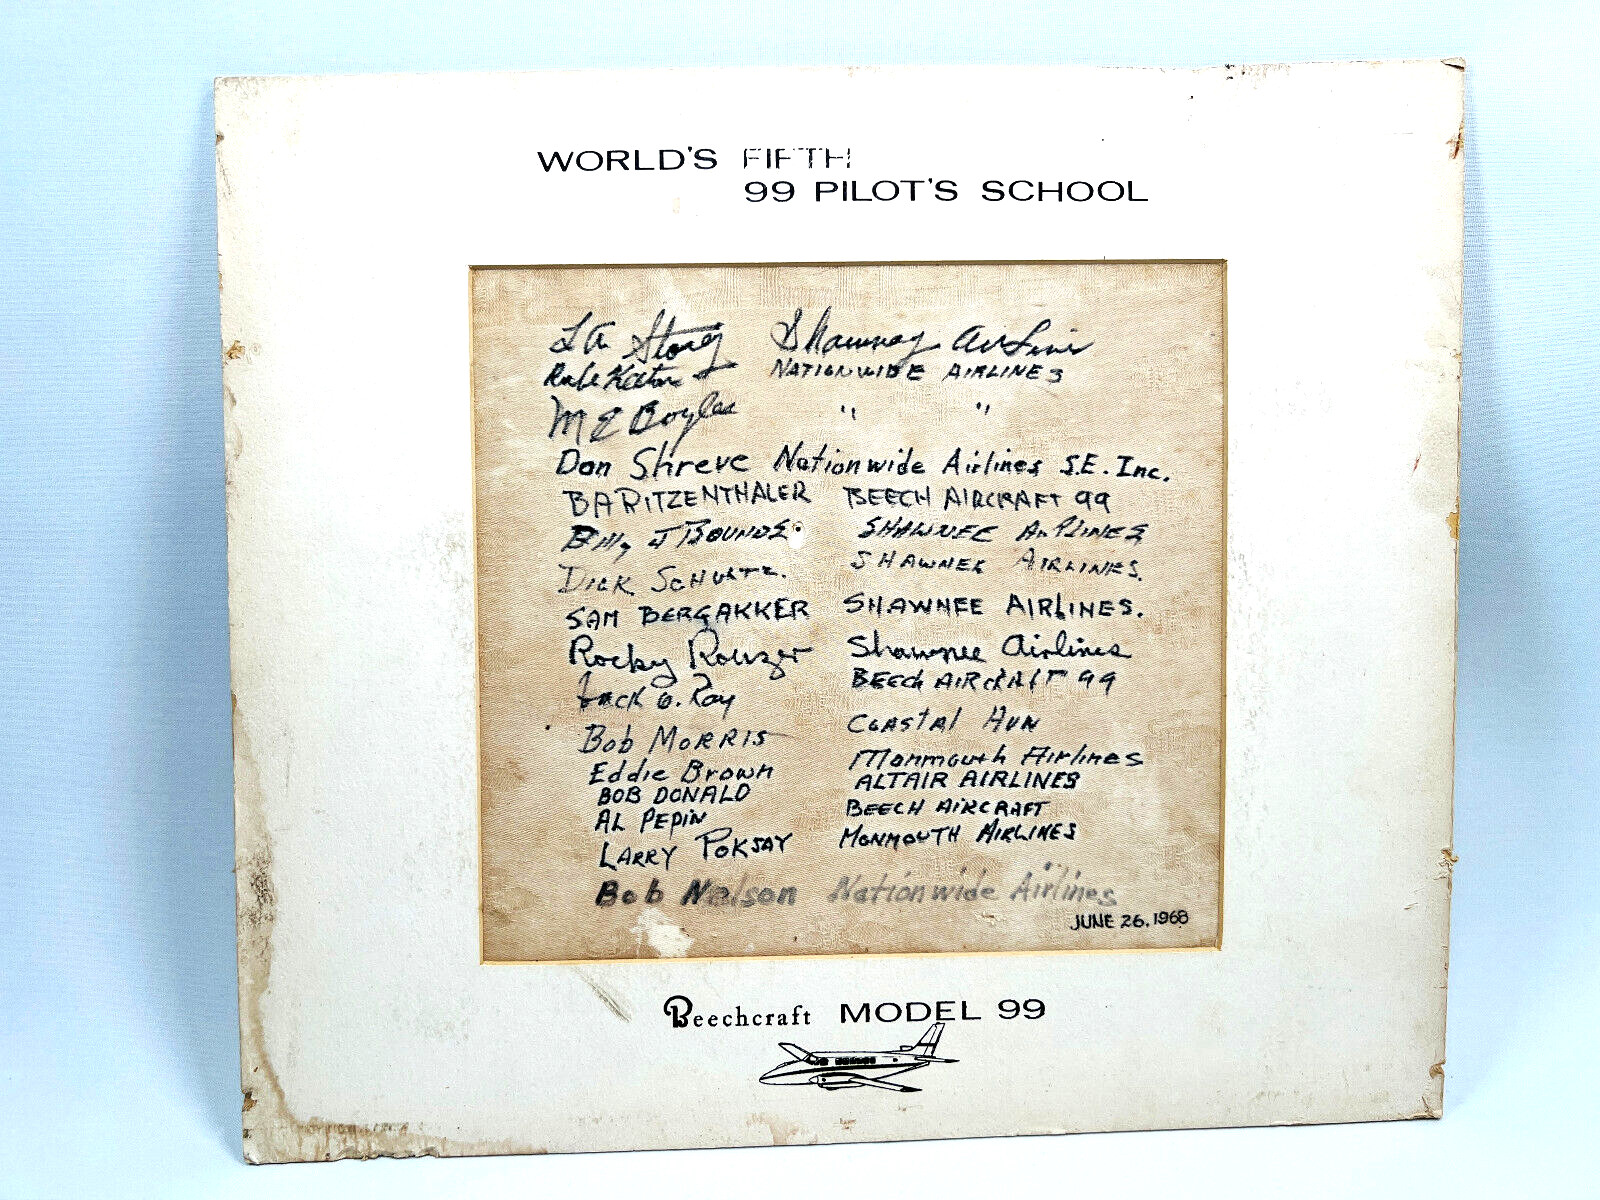 WORLD'S FIFTH
99 PILOT'S SCHOOL
L A Storey Shawney AirLine
NATIONWIDE AIRLINES
M E Boyles " "
Don Shreve Nationwide Airlines S.E. Inc.
BA RITZENTHALER BEECH AIRCRAFT 99
Billy J BOUNDS SHAWNEE AIRLINES
DICK SCHULTZ. SHAWNEE AIRLINES.
SAM BERGAKKER SHAWNEE AIRLINES.
Rocky Rouzer Shawnee Airlines
Jack O. Ray BEECH AIRCRAFT 99
Bob MORRIS COASTAL
Eddie Brown Monmouth Airlines
BOB DONALD ALTAIR AIRLINES
AL PEPIN BEECH AIRCRAFT
LARRY POKSAY MONMOUTH AIRLINES
Bob Nelson Nationwide Airlines
JUNE 26, 1968
Beechcraft MODEL 99